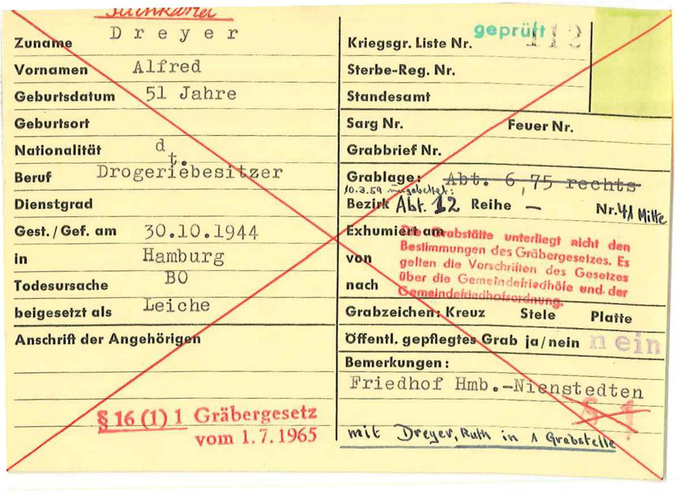 Suchkartei
Zuname Dreyer
Vornamen Alfred
Geburtsdatum 51 Jahre
Geburtsort
Nationalität dt.
Beruf Drogeriebesitzer
Dienstgrad
Gest./Gef. am 30.10.1944
in Hamburg
Todesursache BO
beigesetzt als Leiche
Anschrift der Angehörigen
§ 16 (1) 1 Gräbergesetz
vom 1.7.1965
geprüft
Kriegsgr. Liste Nr. 112
Sterbe-Reg. Nr.
Standesamt
Sarg Nr. Feuer Nr.
Grabbrief Nr.
Grablage: Abt. 6, 75 rechts
10.3.59 umgebettet:
Bezirk Abt. 12 Reihe – Nr. 41 Mitte
Exhumiert am
von
nach
Die Grabstätte unterliegt nicht den
Bestimmungen des Gräbergesetzes. Es
gelten die Vorschriften des Gesetzes
über die Gemeindefriedhöfe und der
Gemeindefriedhofsordnung.
Grabzeichen: Kreuz Stele Platte
Öffentl. gepflegtes Grab ja/nein nein
Bemerkungen:
Friedhof Hmb.-Nienstedten
§ 1
mit Dreyer, Ruth in 1 Grabstelle